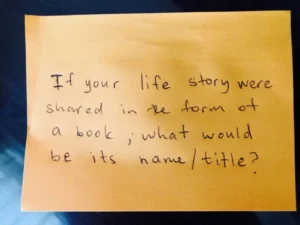 If your life story were
shared in the form of
a book, what would
be its name/title?